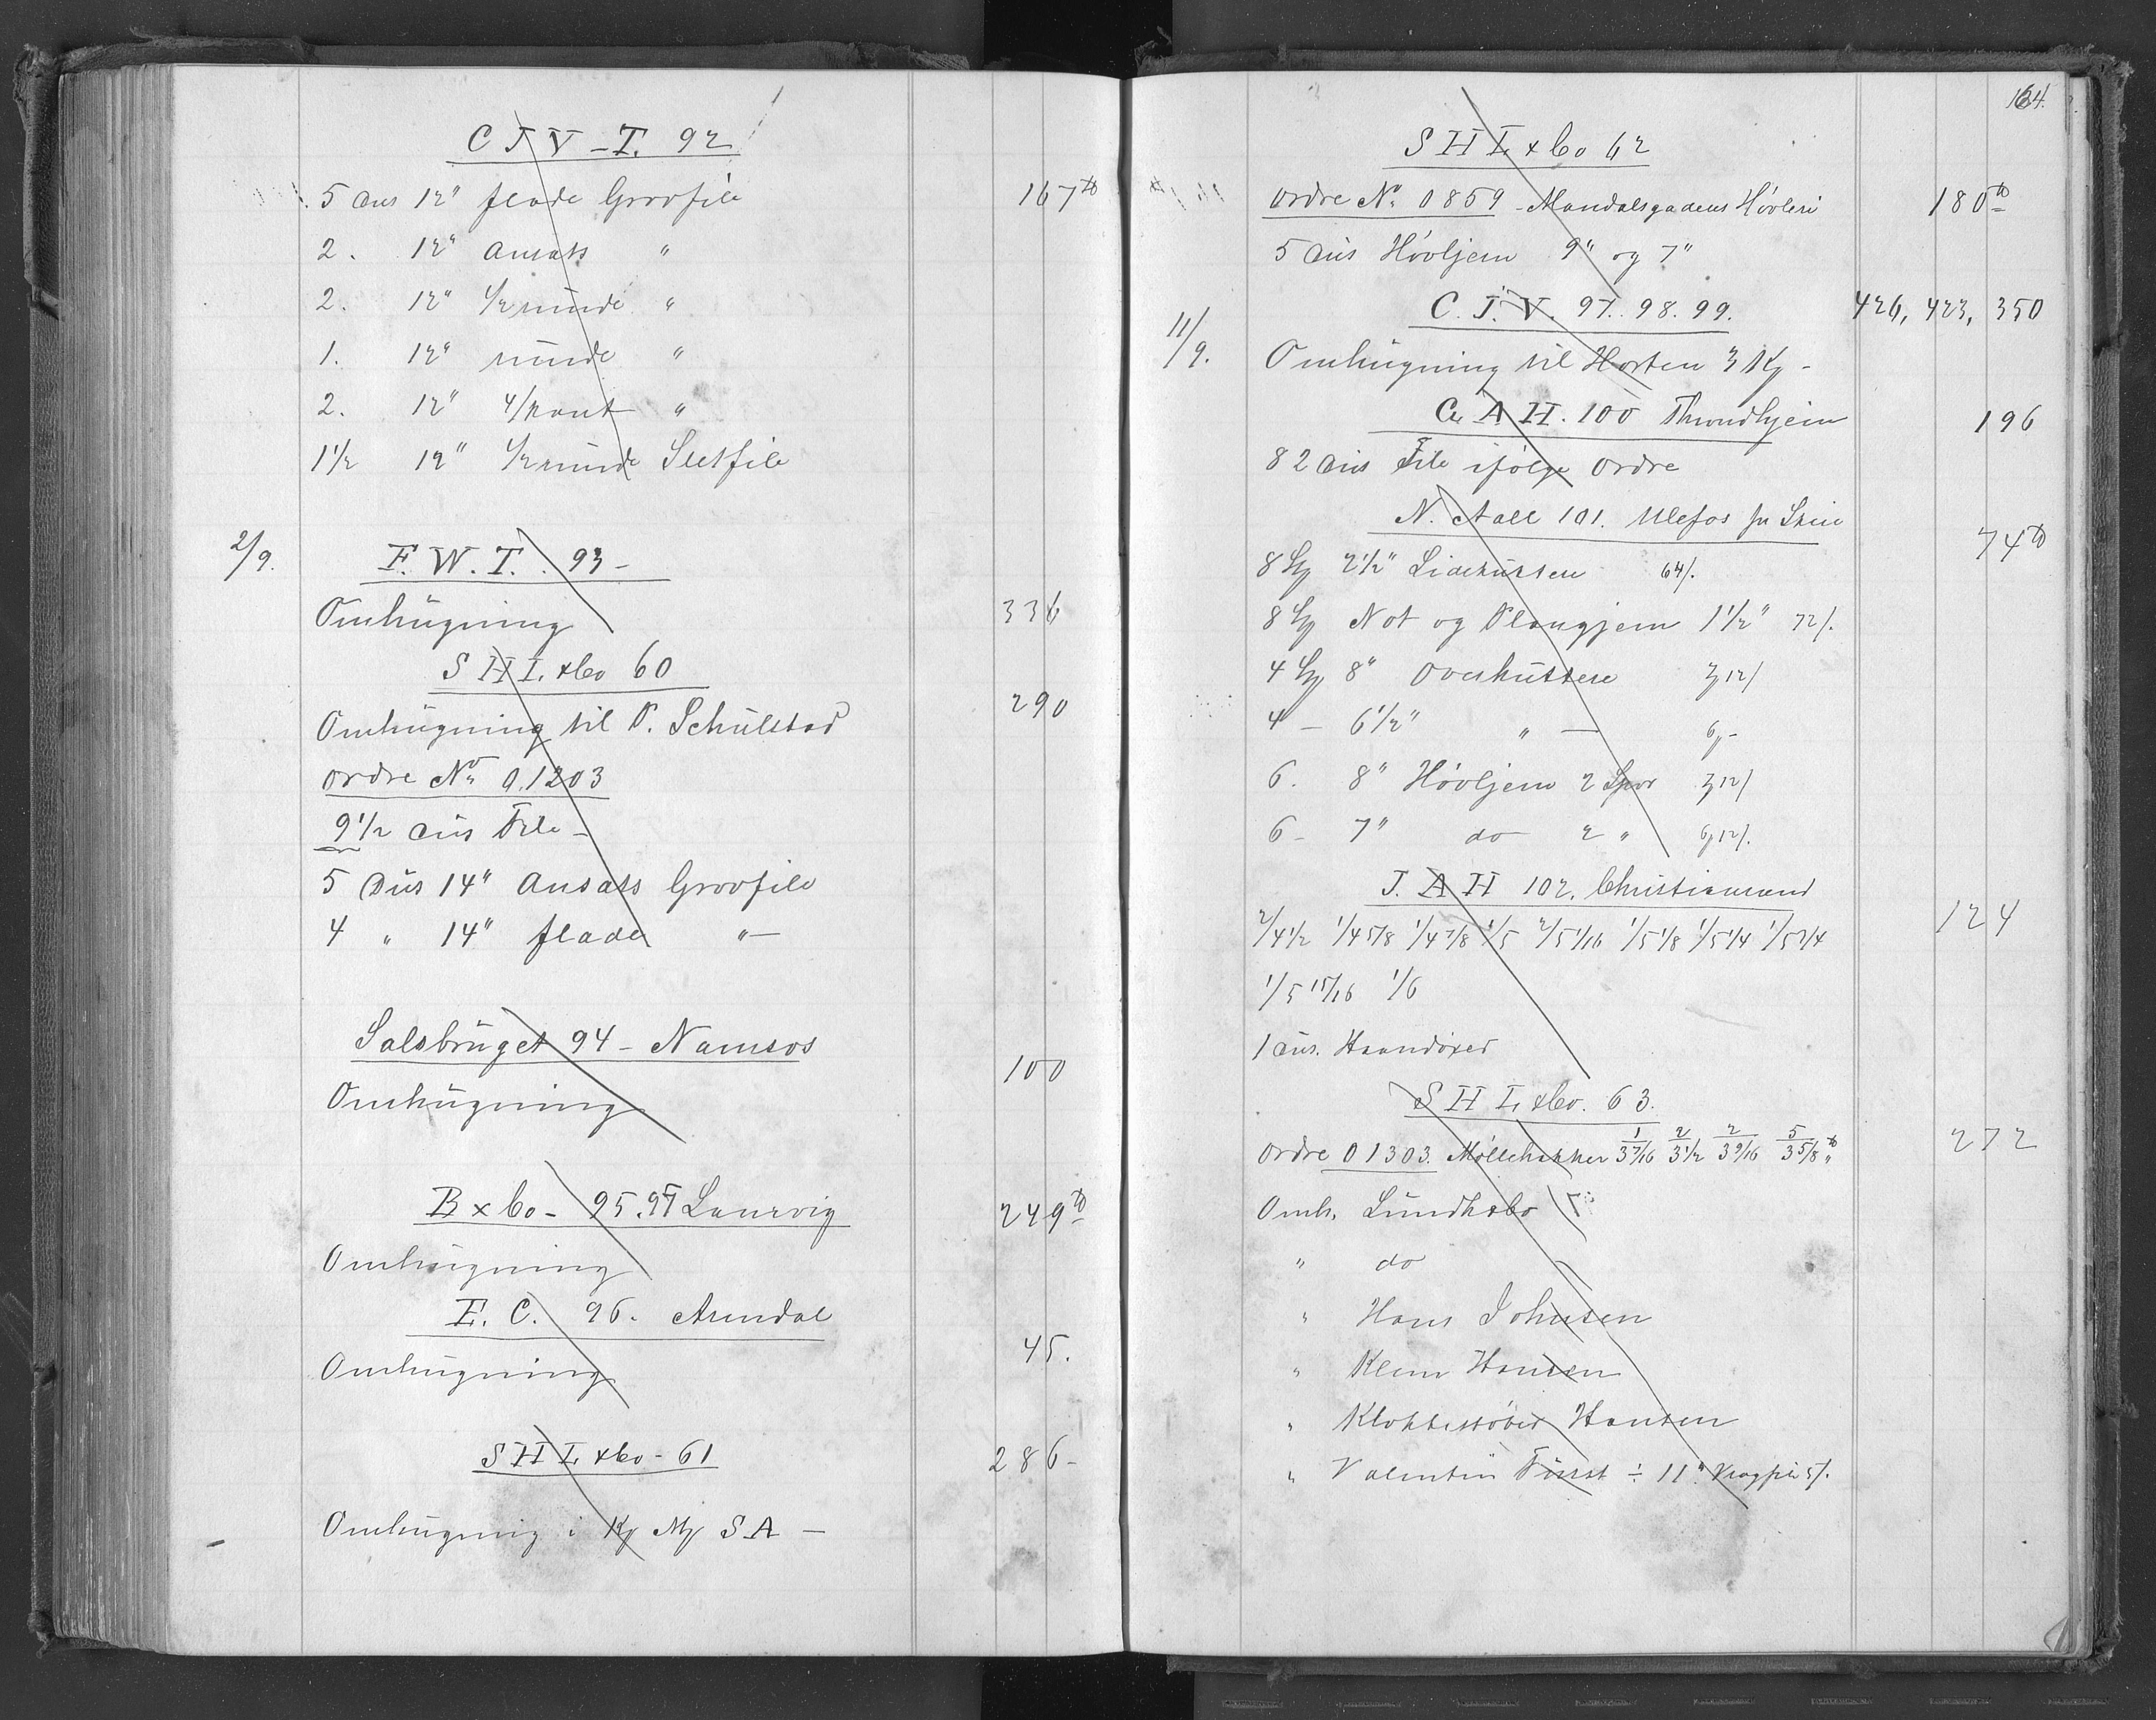 C J V - T. 92
5 dus 12" flade Grovfile 167 ℔
2. 12" Ansats "
2. 12" ½ runde "
1. 12" runde "
2. 12" 4/kant "
1½ 12" ½ runde Sletfile
2/9. F. W. T. 93 -
Omhugning 336
S H L & Co 60
Omhugning til P. Schulstad 290
Ordre No 0.1203
9½ dus File -
5 Dus 14" Ansats Grovfile
4 " 14" flade " -
Salsbruget 94 - Namsos
Omhugning 100
B & Co - 95. 97 Laurvig
Omhugning 249 ℔
E. C. 96. Arendal
Omhugning 45.
S H L & Co - 61 286 -
Omhugning i Kg Mg S A -
164.
S H L & Co 62
Ordre No 0859 - Mandalsgadens Høvleri 180 ℔
5 dus Høvljern 9" og 7"
C. J. V. 97. 98. 99. 426, 423, 350
11/9. Omhugning til Horten 3 Kg -
C. A H. 100 Throndhjem 196
82 dus File ifølge Ordre
N. Aall 101. Ulefos pr Skien
8 2½" Sidekuttere 64/. 74 ℔
8 Not og Plougjern 1½" 72/.
4 8" Overkuttere 12/
4 - 6½" " -
6. 8" Høvljern 2 Spor 12/
6 - 7" do 2 " 12/.
J. A H 102. Christiansund
2/4½ 1/4 5/8 1/4 7/8 1/5 2/5 1/16 1/5 1/8 1/5 1/4 1/5 3/4 124
1/5 15/16 1/6
1 dus. Haandøxer
S H L & Co. 63.
Ordre 01303. Møllehakker 1/3 7/16 2/3 1/2 2/3 9/16 5/3 5/8 ℔ 272
Omh. Lundh & Co
" do
" Hans Johnsen
" Klem Hansen
" Klokkestøber Hansen
" Valentin Fürst ÷ 11"